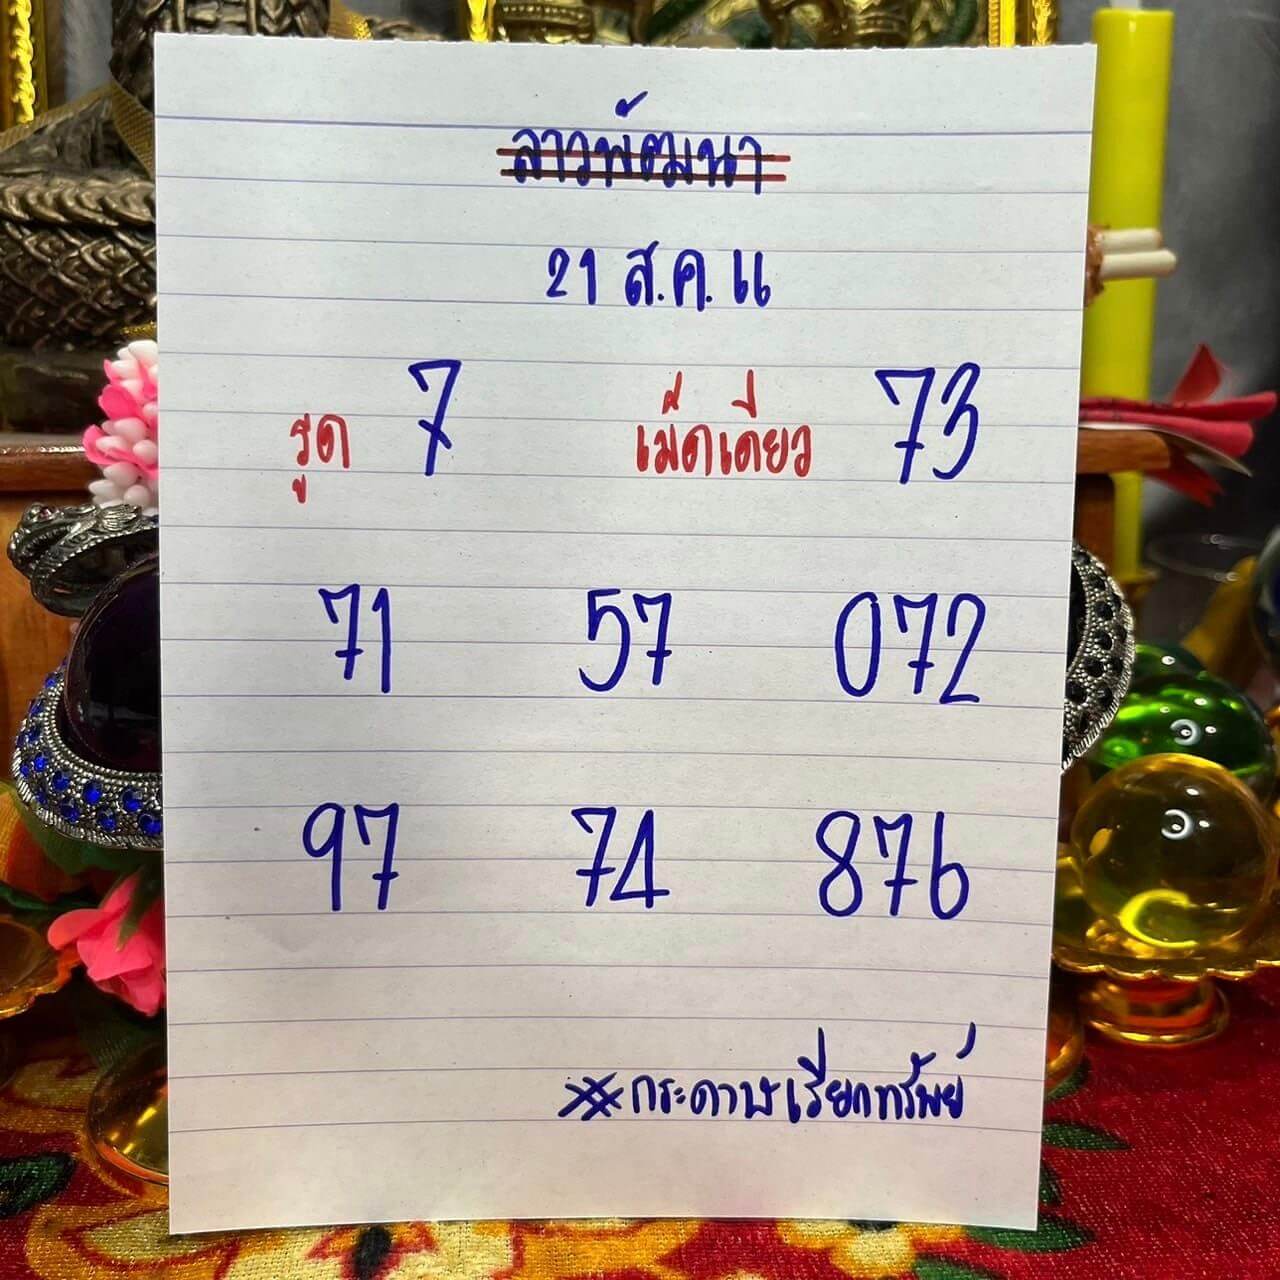 ลาวพัฒนา
21 ส.ค. 11
รูด 7 เม็ดเดียว 73
71 57 072
97 74 876
※กระดาษเรียกทรัพย์